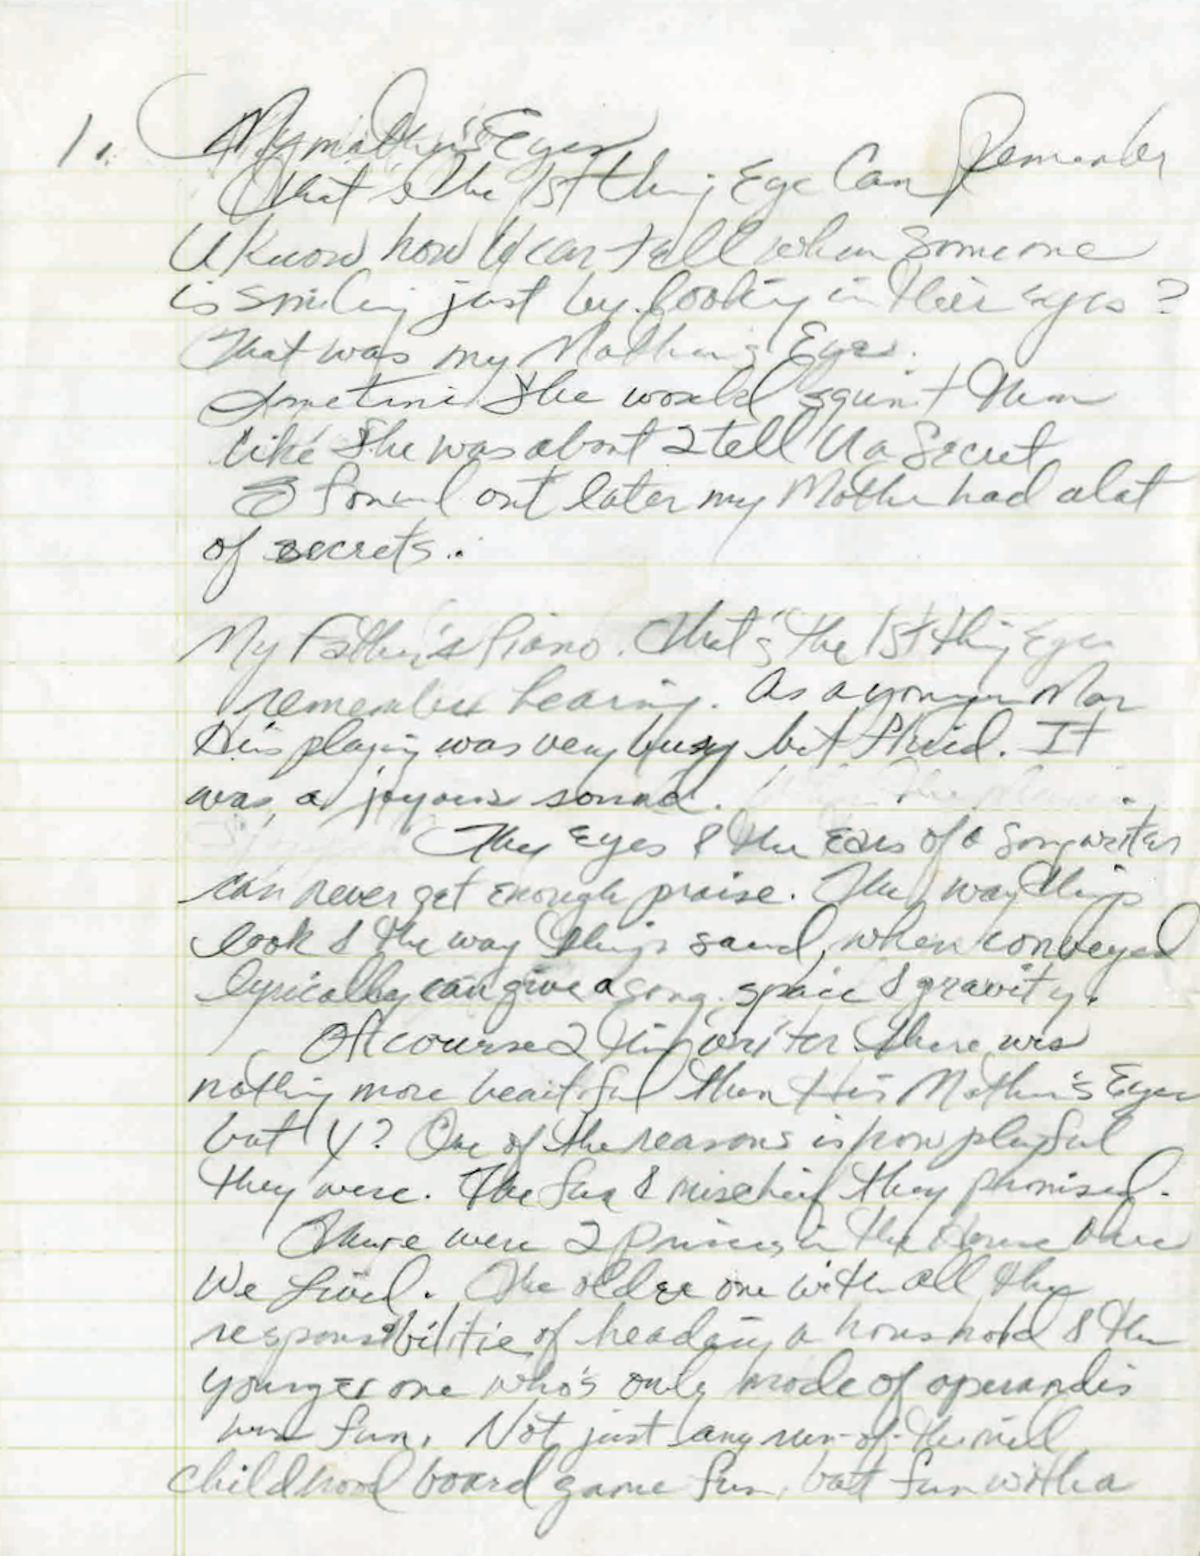 1. My mother's Eyes
That's the 1st thing Eye Can Remember
U Know how U can tell when someone
is smiling just by looking in their eyes?
That was my Mother's Eyes.
Sometimes She would squint them
like She was about 2 tell U a Secret
Eye found out later my Mother had alot
of secrets..
My Father's Piano. That's the 1st thing Eye
remember hearing. As a younger Man
His playing was very busy but fluid. It
was a joyous sound.
The Eyes & the Ears of a Songwriter
can never get enough praise. The way things
look & the way things sound, when conveyed
lyrically can give a song space & gravity.
Of course 2 this writer there was
nothing more beautiful than His Mother's Eyes
but Y? One of the reasons is how playful
they were. The fun & mischief they promised.
There were 2 Princes in the House where
We Lived. The older one with all the
responsibilities of heading a household & the
younger one who's only mode of operandis
was fun. Not just any run-of-the-mill
childhood board game fun, but fun with a